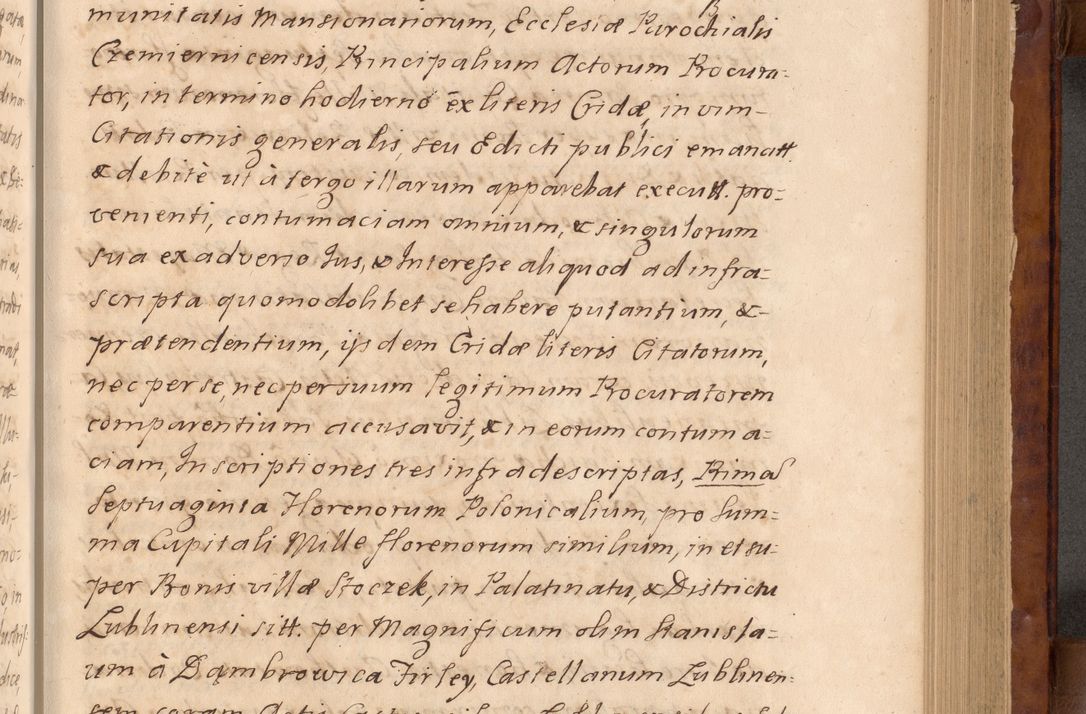 munitatis Mansionariorum, Ecclesiæ Parochialis
Czemiernicensis, Principalium Actorum Procura-
tor, in termino hodierno ex literis Cridæ, in vim
Citationis generalis, seu Edicti publici emanatt.
& debitè ut à tergo illarum apparebat executt. pro-
venienti, contumaciam omnium, & singulorum
sua ex adverso Jus, & Interesse aliquod ad infra-
scripta quomodolibet se habere putantium, &
prætendentium, ijsdem Cridæ literis Citatorum,
nec per se, nec per suum legitimum Procuratorem
comparentium accusavit, & in eorum contuma-
ciam, Inscriptiones tres infradescriptas, Prima
Septuaginta Florenorum Polonicalium, pro Sum-
ma Capitali Mille florenorum similium, in et su-
per Bonis villæ Stoczek, in Palatinatu, & Districtu
Lublinensi sitt. per Magnificum olim Stanisla-
um à Dąmbrowica Firley, Castellanum Lublinen-
sem coram Actis